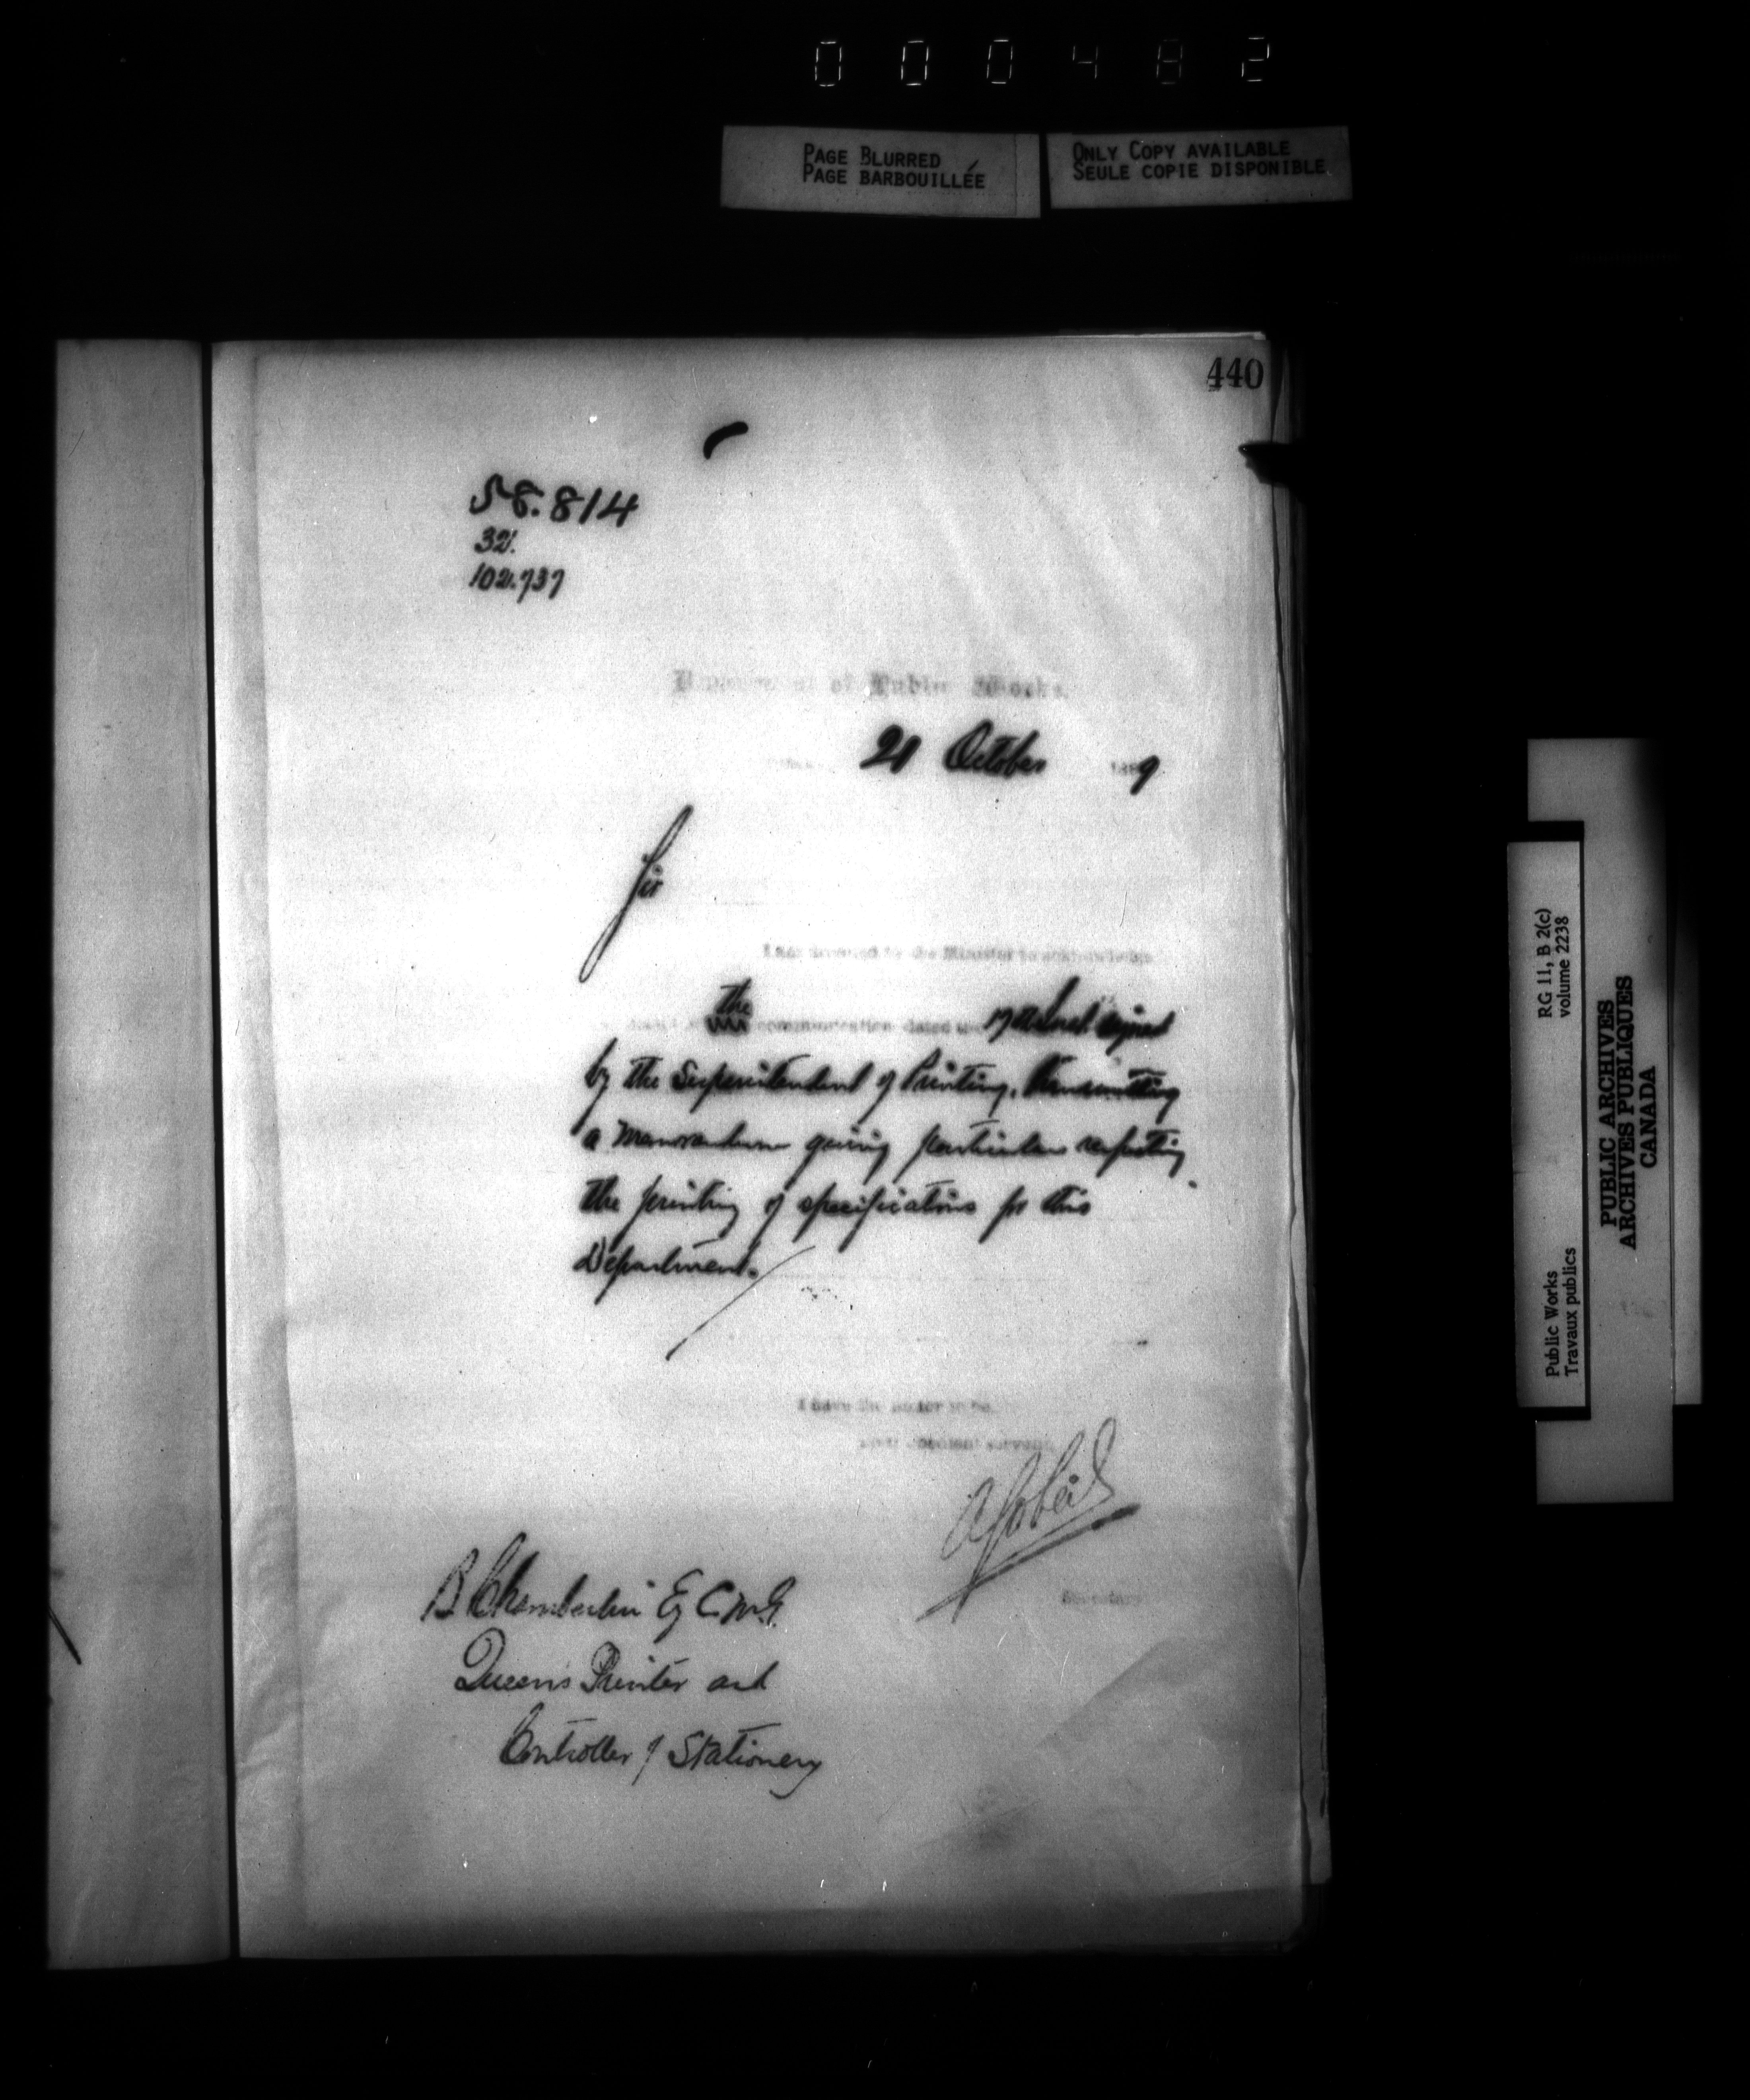 000482
PAGE BLURRED
PAGE BARBOUILLÉE
ONLY COPY AVAILABLE
SEULE COPIE DISPONIBLE
440
58.814
32.
102.737
Department of Public Works.
21 October 1889
Sir
I am directed by the Minister to acknowledge
the communication dated the 17th Inst signed
by the Superintendent of Printing, transmitting
a Memorandum giving particulars respecting
the printing of specifications for this
Department.
I have the honor to be,
Your obedient servant,
A Gobeil
Secretary
B Chamberlin Esq C.M.G.
Queen's Printer and
Controller of Stationery
RG 11, B 2(c)
volume 2238
Public Works
Travaux publics
PUBLIC ARCHIVES
ARCHIVES PUBLIQUES
CANADA